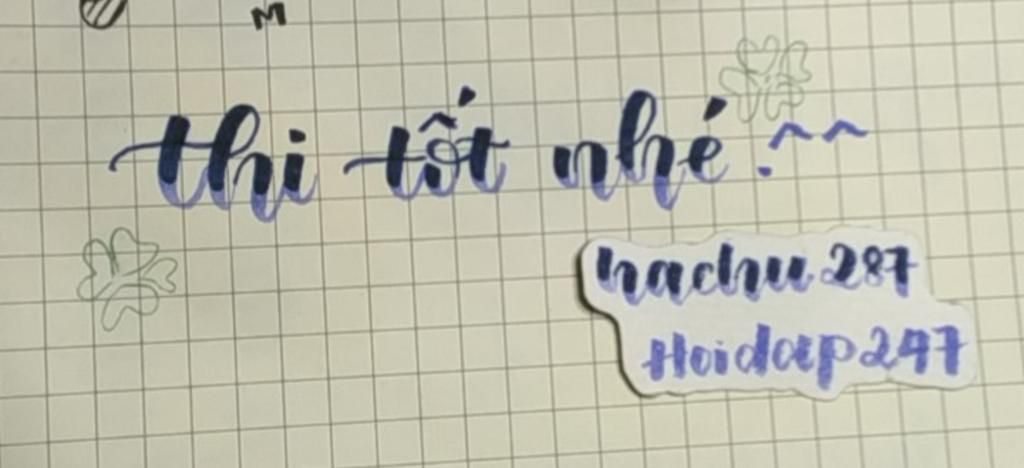 M
thi tốt nhé.^^
hachu287
Hoidap247